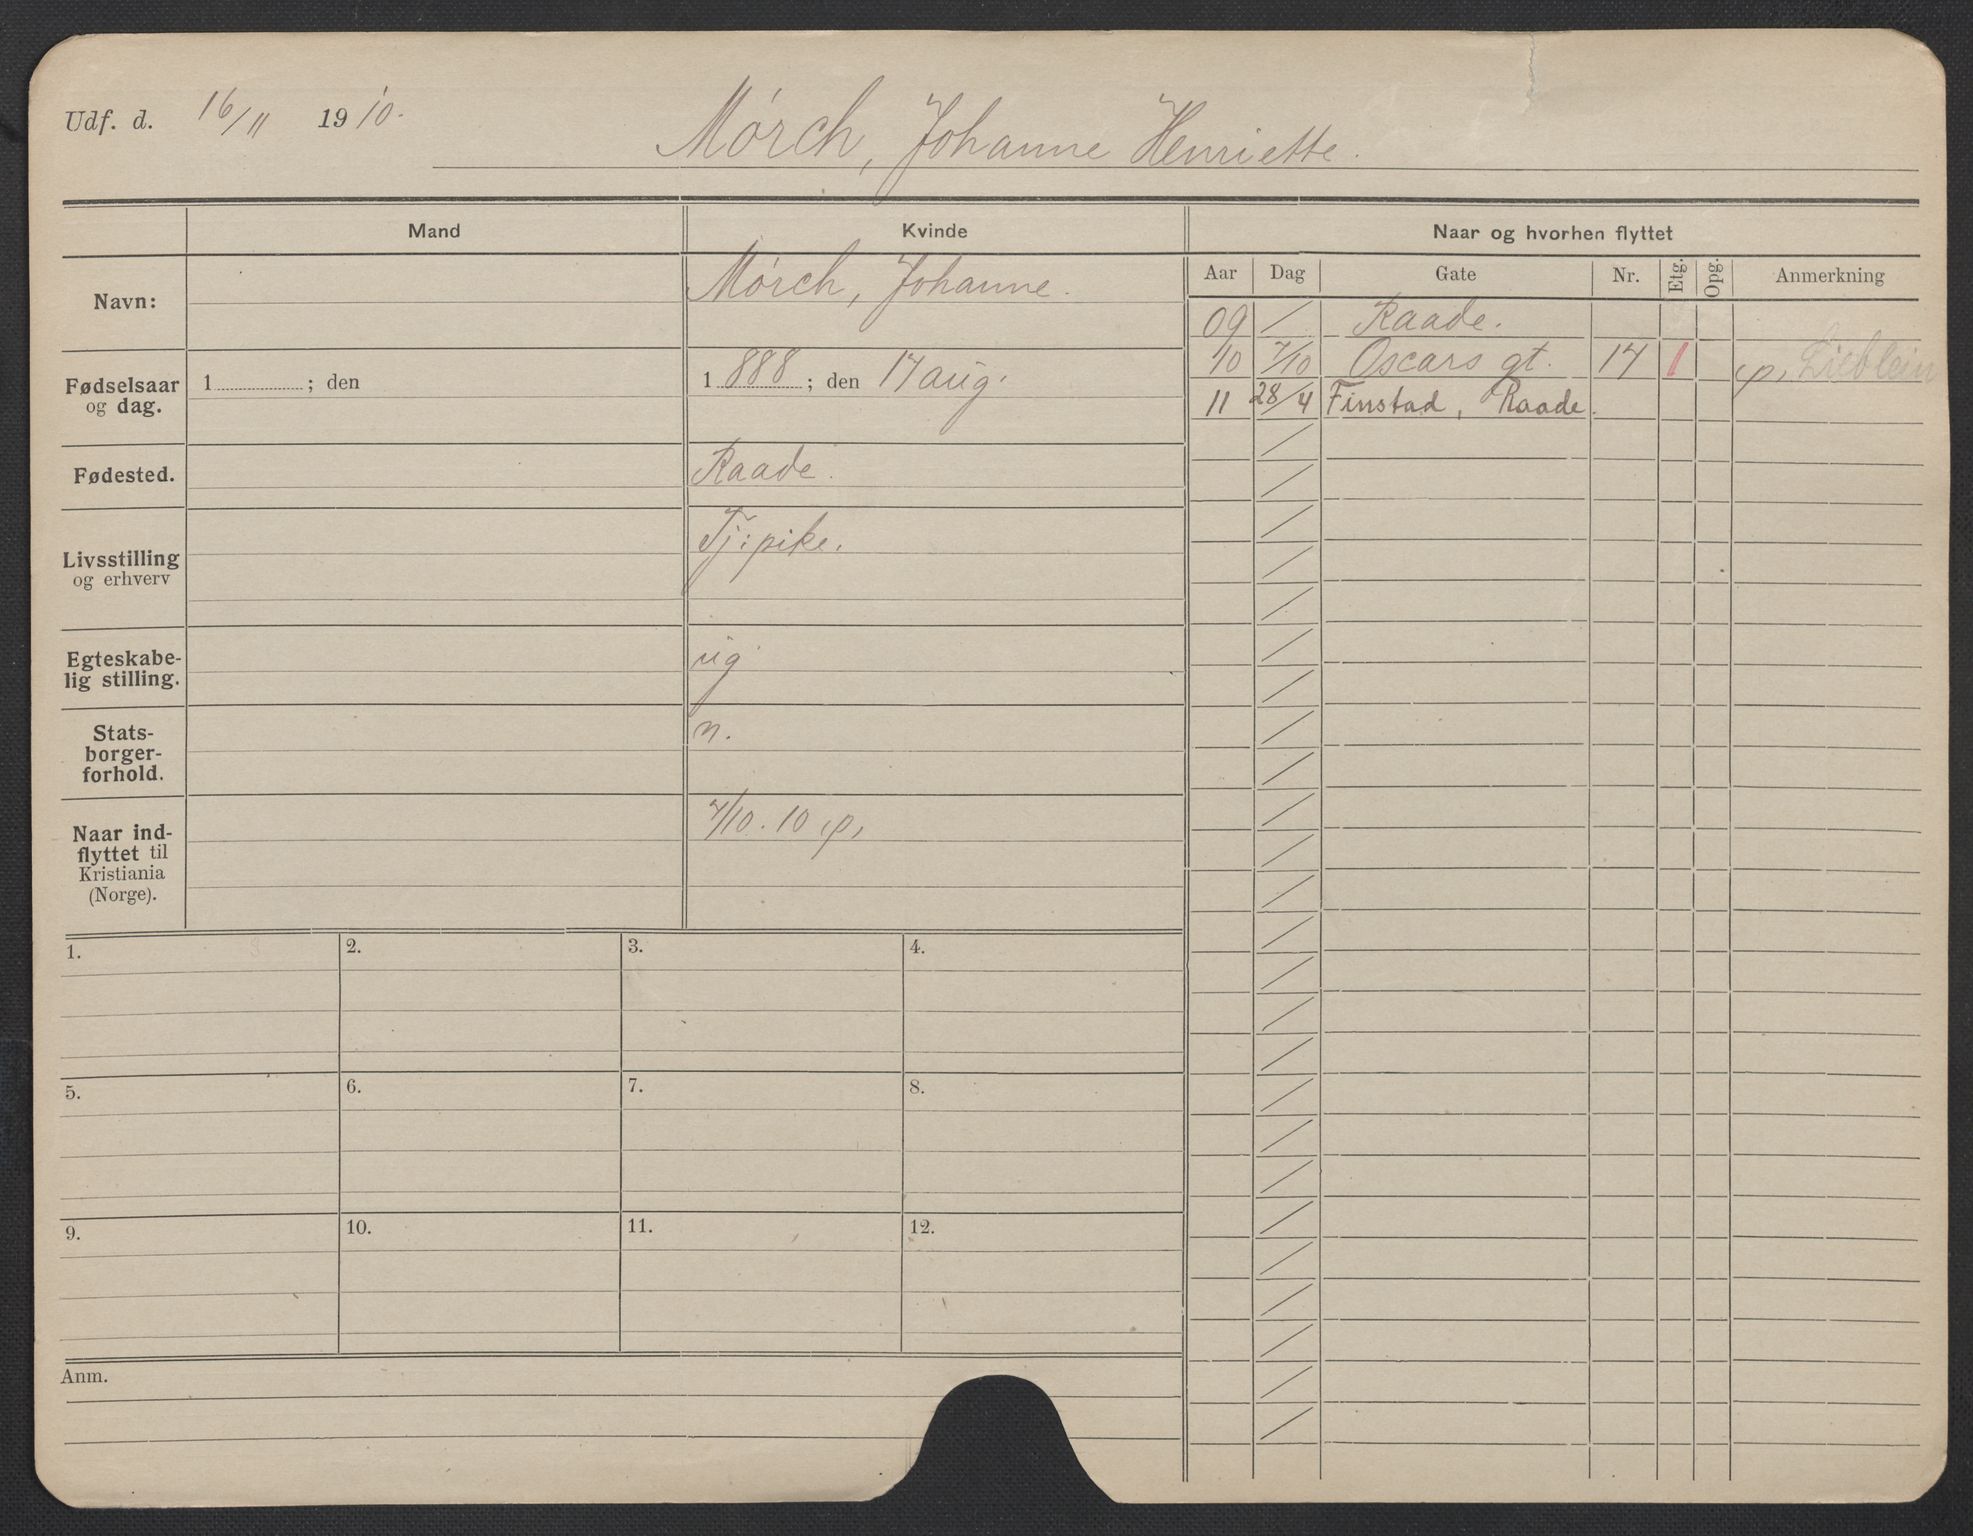 Udf. d. 16/11 1910.
Mórch, Johanne Henriette.
Mand
Kvinde
Naar og hvorhen flyttet
Navn:
Mórch, Johanne.
Fødselsaar
og dag.
1 ; den
1 888 ; den 17 aug.
Fødested.
Raade.
Livsstilling
og erhverv
Tj: pike.
Egteskabe-
lig stilling.
ug
Stats-
borger-
forhold.
n.
Naar ind-
flyttet til
Kristiania
(Norge).
7/10. 10 p,
1.
2.
3.
4.
5.
6.
7.
8.
9.
10.
11.
12.
Anm.
Aar Dag Gate Nr. Etg. Opg. Anmerkning
09 / Raade.
10 7/10 Oscars gt. 17 1 p, Lieblein
11 28/4 Finstad, Raade.